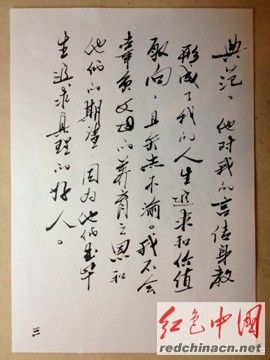 典范。他对我的言传身教
形成了我的人生追求和价值
取向，且矢志不渝。我不会
辜负父母的养育之恩和
他们的期待，因为他们是毕
生追求真理的好人。
三
红色中国
redchinacn.net